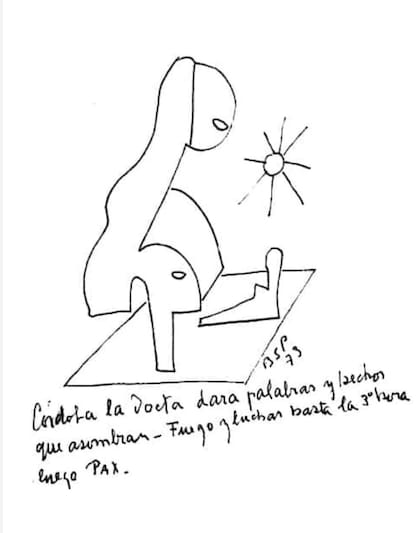 BSP
73
Córdoba la Docta dara palabras y hechos
que asombran - Fuego y luchas hasta la 3ª hora
luego PAX.